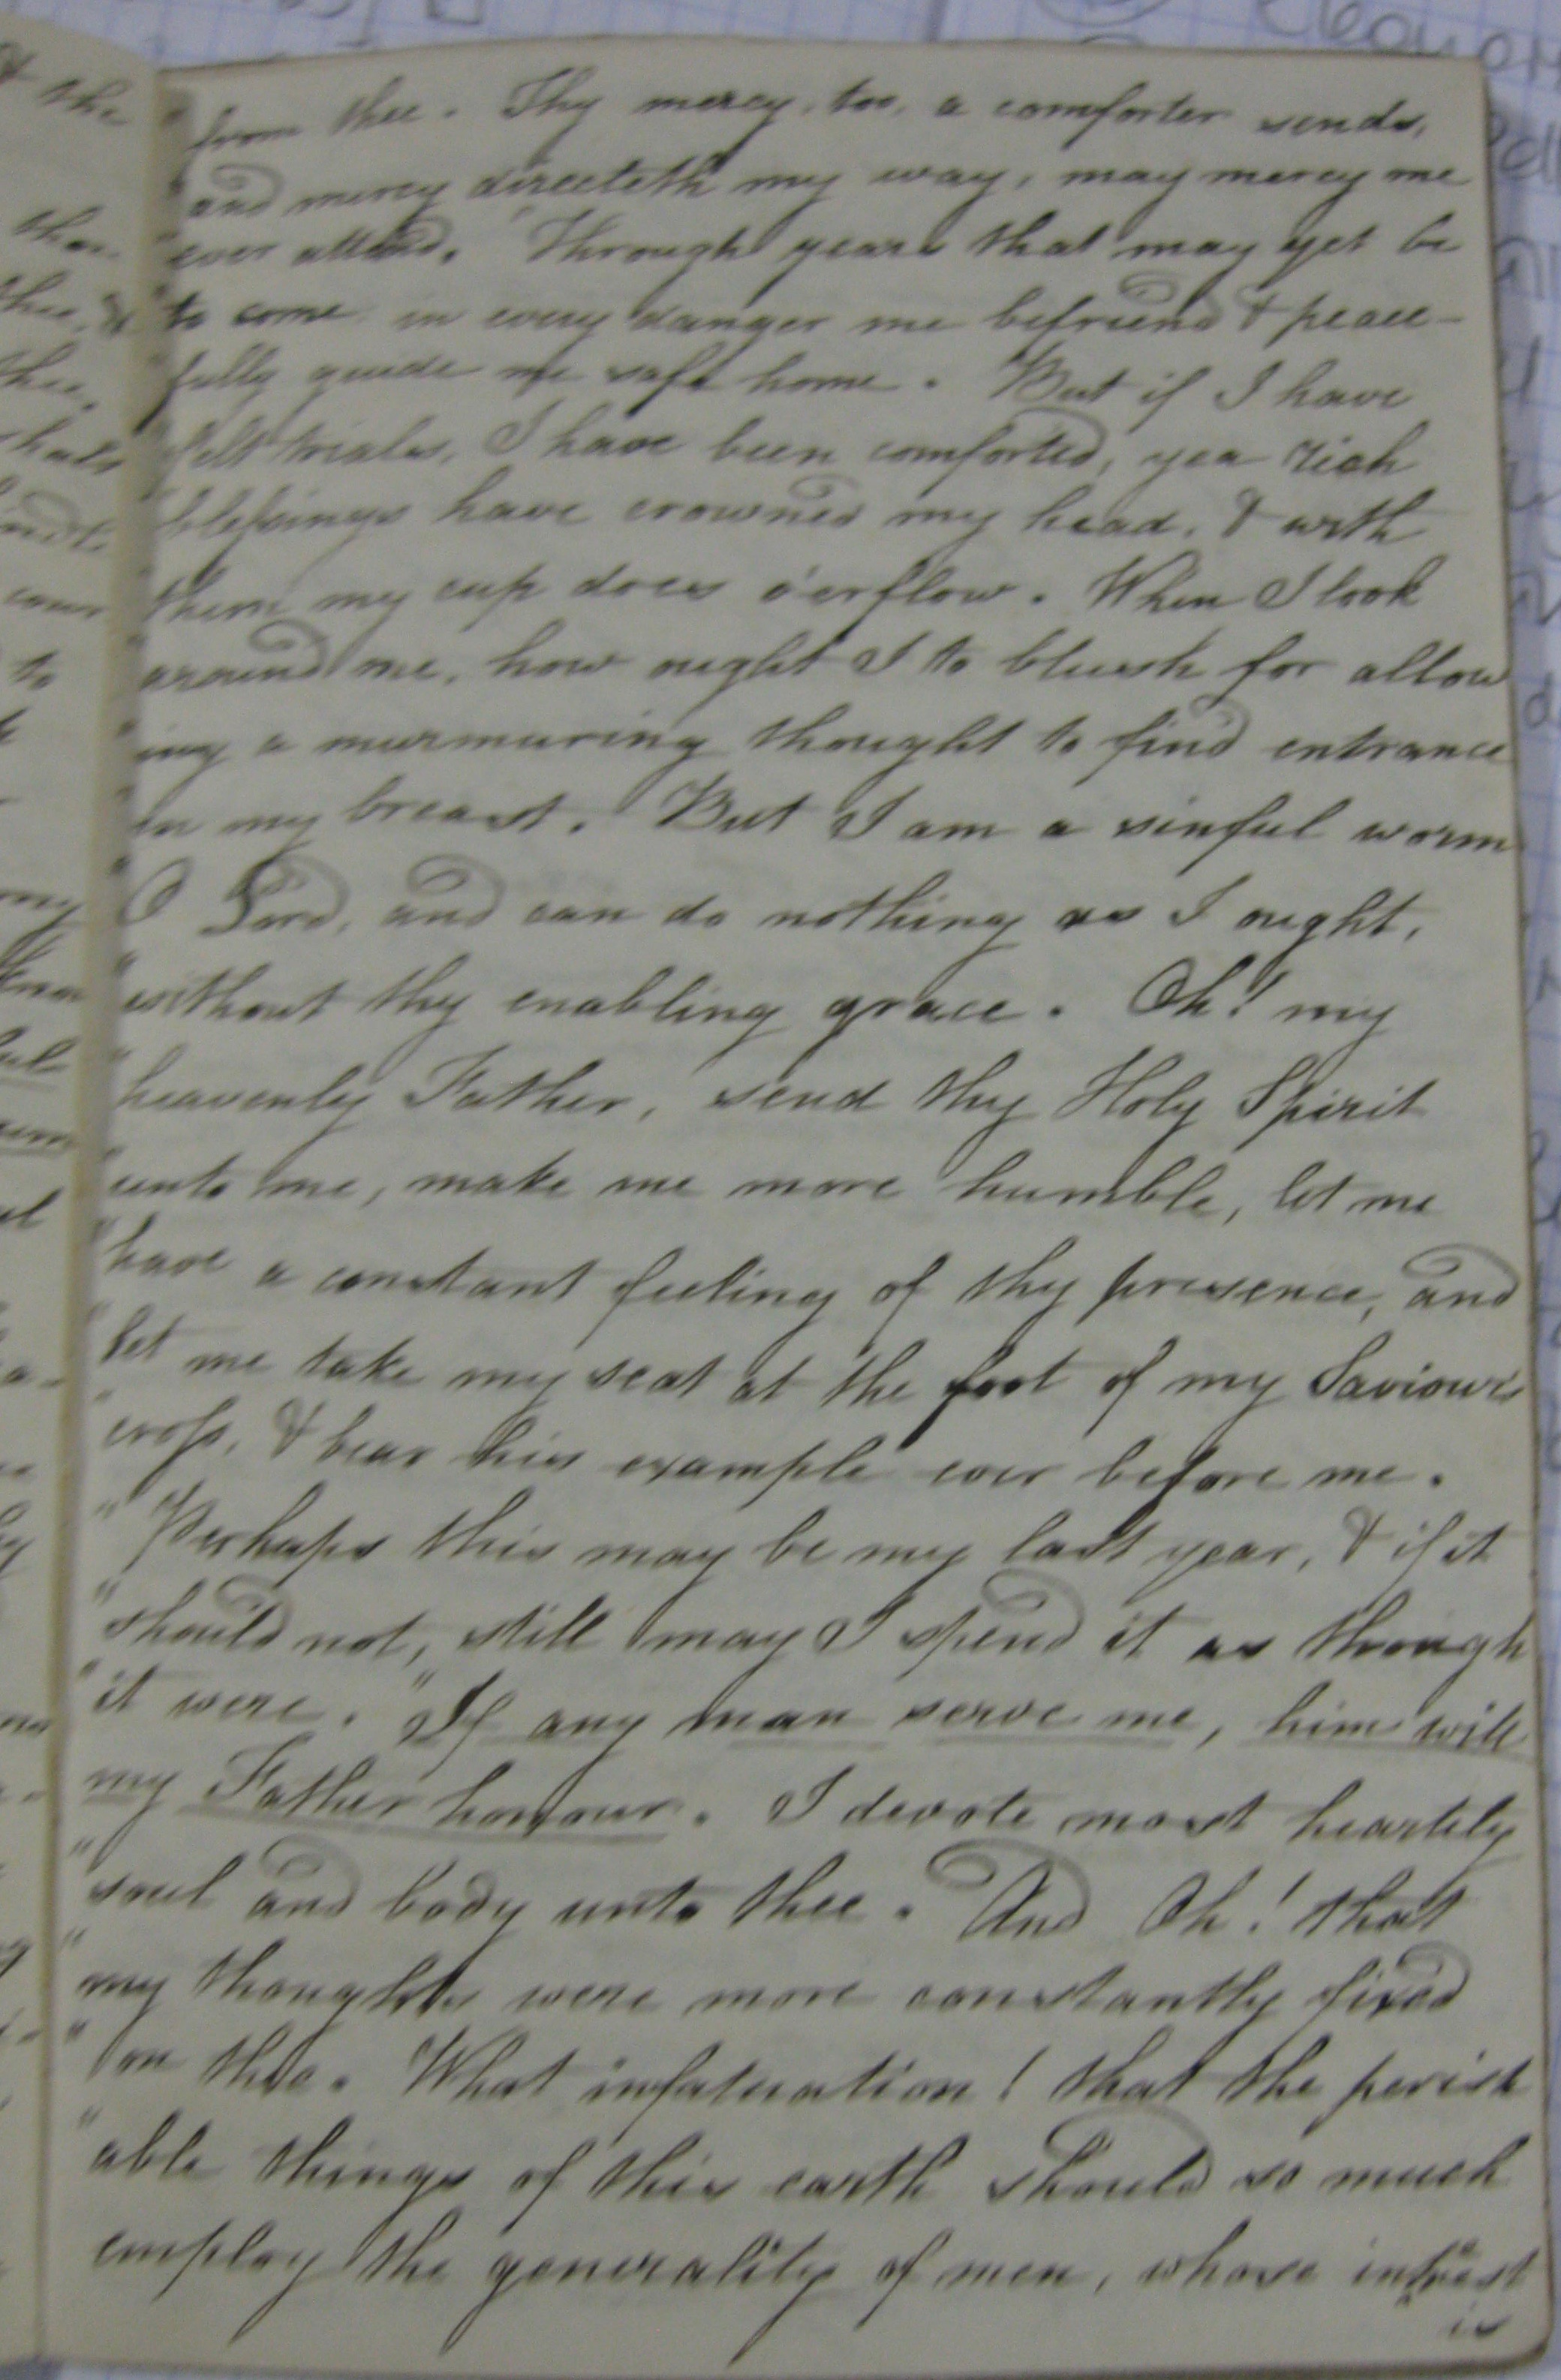 "from thee. Thy mercy, too, a comforter sends,
"and mercy directeth my way, may mercy me
"ever attend. "Through years that may yet be
"to come in every danger me befriend & peace-
"fully guide me safe home. But if I have
"felt trials, I have been comforted, yea rich
"blessings have crowned my head, & with
"them my cup does o'erflow. When I look
"around me, how ought I to blush for allow
"ing a murmuring thought to find entrance
"in my breast. But I am a sinful worm
"O Lord, and can do nothing as I ought,
"without thy enabling grace. Oh! my
"heavenly Father, send thy Holy Spirit
"unto me, make me more humble, let me
"have a constant feeling of thy presence, and
"let me take my seat at the foot of my Saviour's
"cross, & bear his example ever before me.
"Perhaps this may be my last year, & if it
"should not, still may I spend it as though
"it were. "If any man serve me, him will
my Father honour. I devote most heartily
"soul and body unto thee. And Oh! that
"my thoughts were more constantly fixed
"on thee. What infatuation! that the perish
"able things of this earth should so much
employ the generality of men, whose interest
is